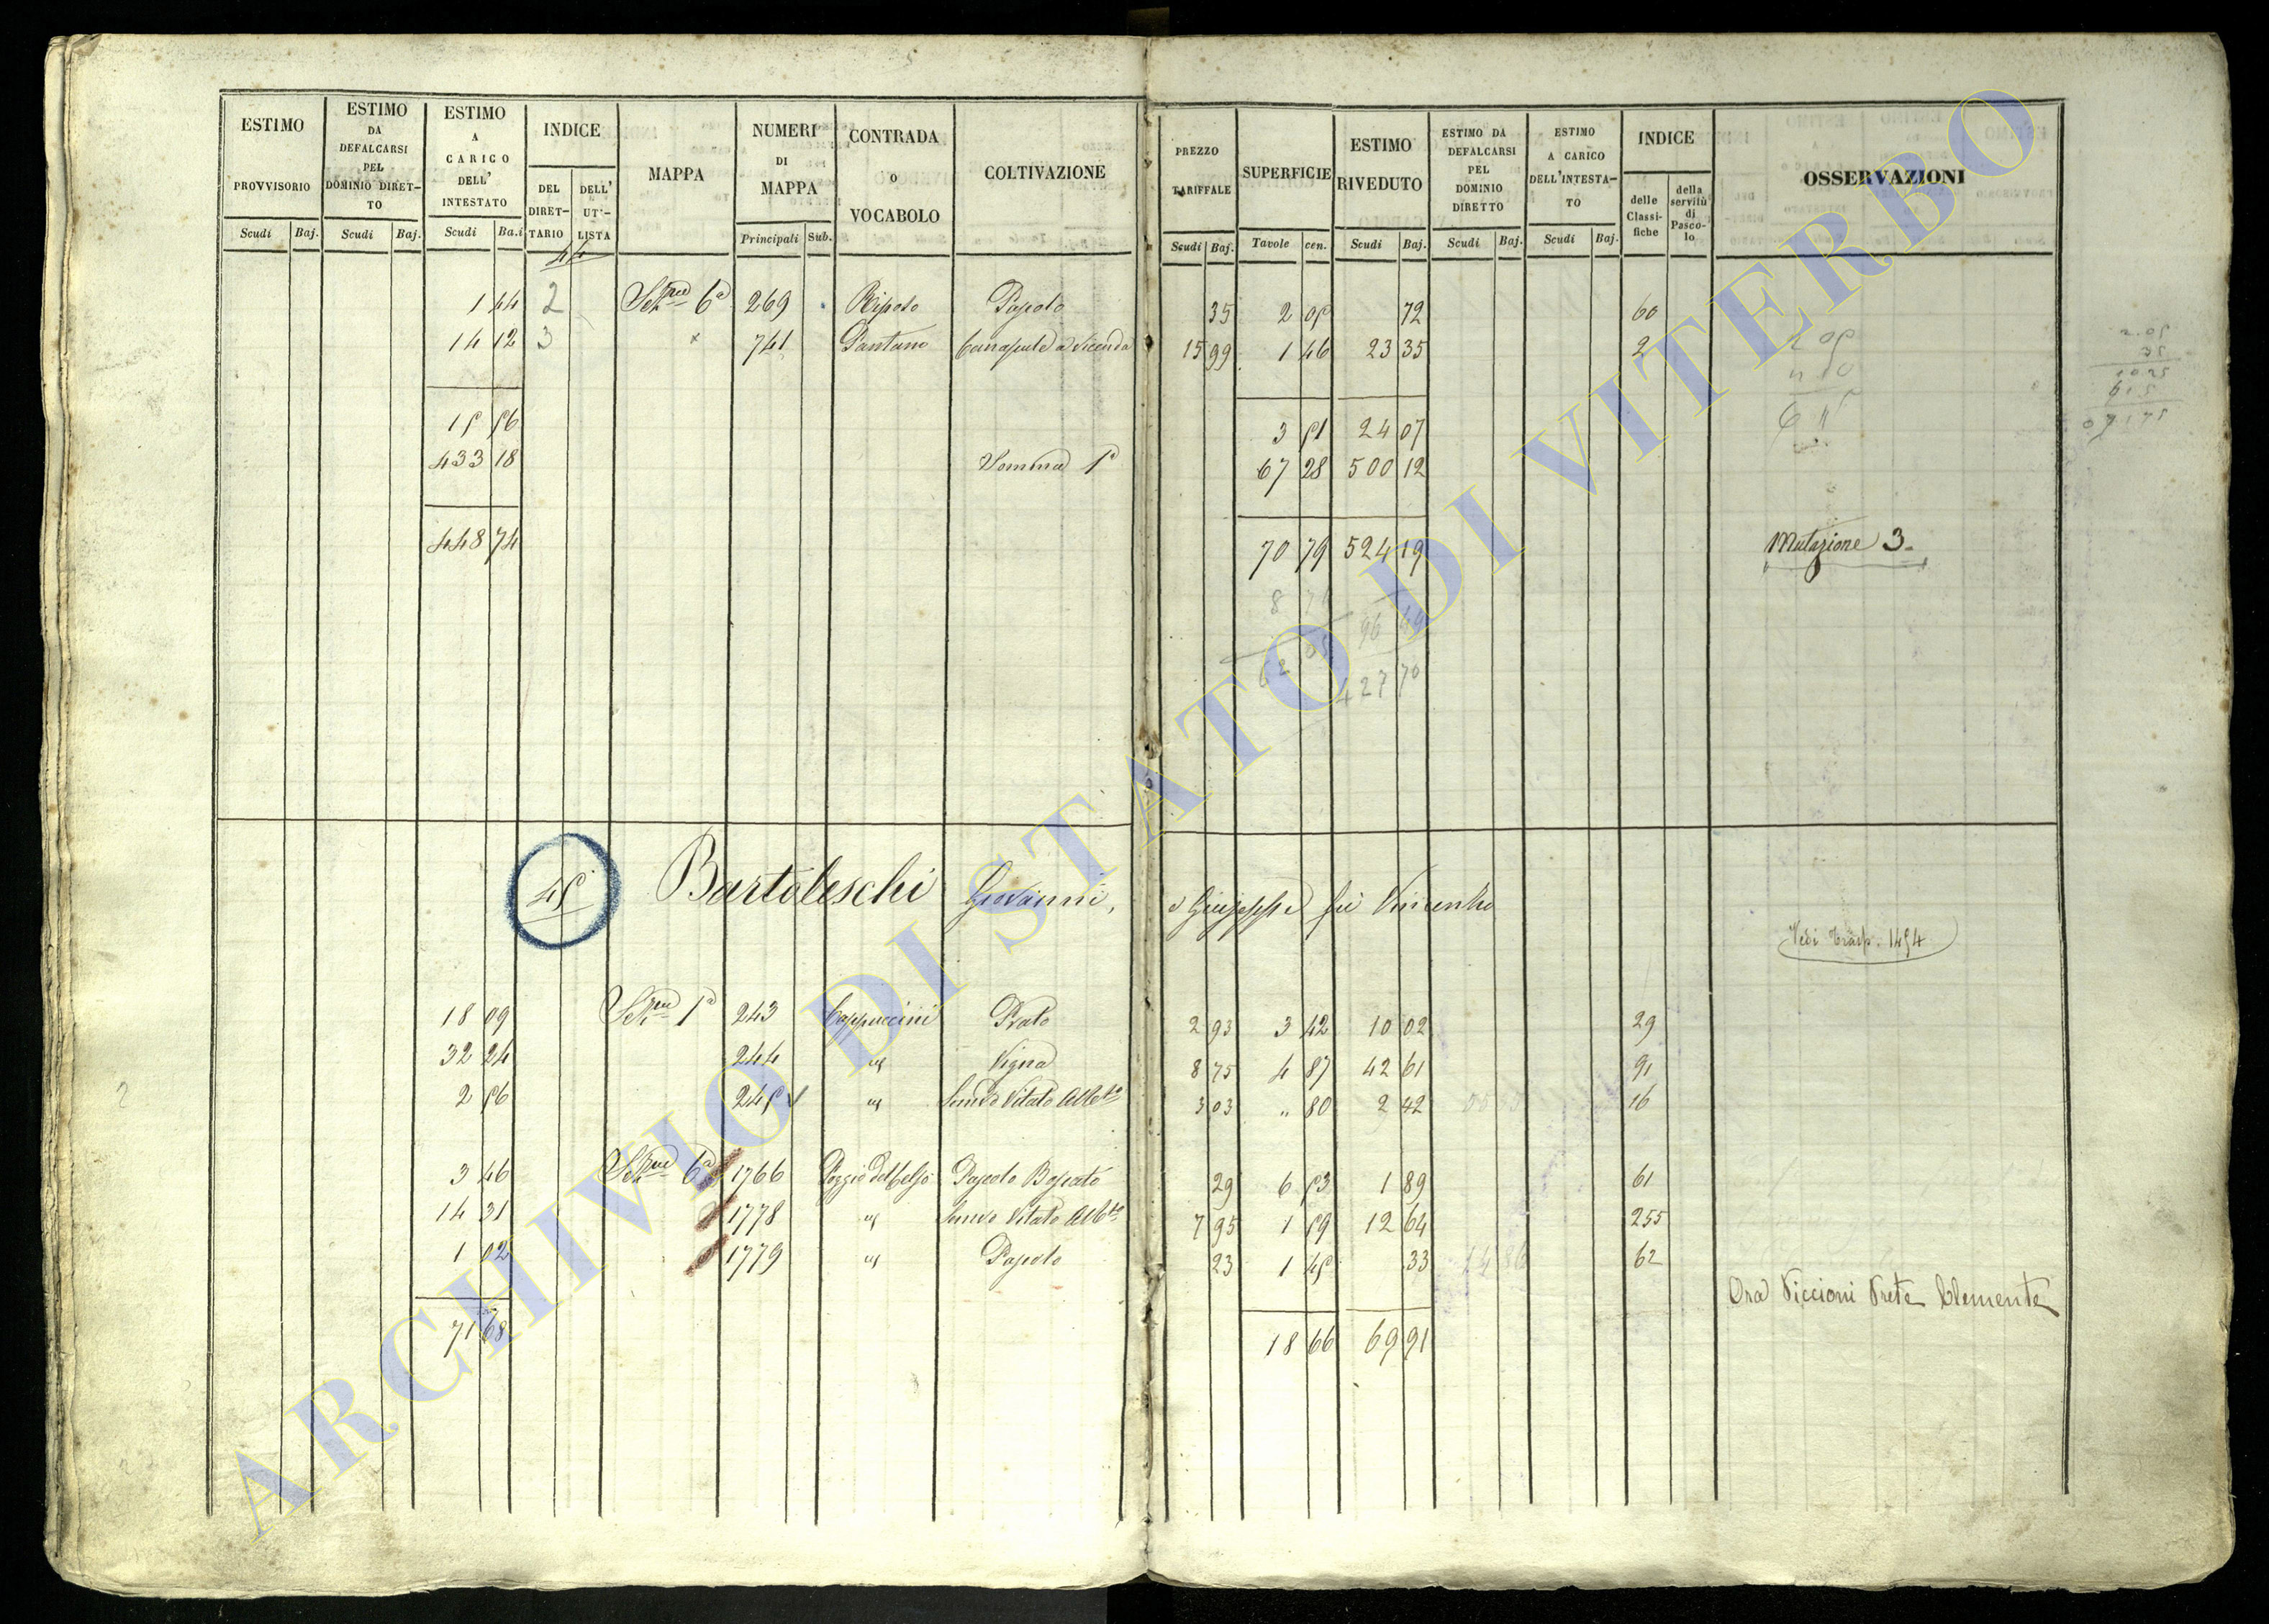 ESTIMO PROVVISORIO
Scudi Baj.
ESTIMO DA DEFALCARSI PEL DOMINIO DIRET-TO
Scudi Baj.
ESTIMO A CARICO DELL' INTESTATO
Scudi Ba.i
INDICE
DEL DIRET-TARIO
DELL' UT'-LISTA
MAPPA
NUMERI DI MAPPA
Principali Sub.
CONTRADA O VOCABOLO
COLTIVAZIONE
PREZZO TARIFFALE
Scudi Baj.
SUPERFICIE
Tavole cen.
ESTIMO RIVEDUTO
Scudi Baj.
ESTIMO DA DEFALCARSI PEL DOMINIO DIRETTO
Scudi Baj.
ESTIMO A CARICO DELL'INTESTA-TO
Scudi Baj.
INDICE
delle Classi-fiche
della servitù di Pasco-lo
OSSERVAZIONI
44
1 44 2 Sez.ne 6a 269 Riposo Pascolo 35 2 05 72 60
14 12 3 741 Pantano Canapule a Vicenda 15 99 1 46 23 35 2
15 56 3 51 24 07
433 18 Somma Pa 67 28 500 12
448 74 70 79 524 19 Mutazione 3.
8 74 96 49
62 05 427 70
45 Bartoleschi Giovanni, e Giuseppe fu Vincenzo
Vedi Trasp. 1454
18 09 Sez.ne Pa 243 Cappuccini Prato 2 93 3 42 10 02 29
32 24 244 " Vigna 8 75 4 87 42 61 91
2 56 245 " Semvo Vitato Albto 3 03 " 80 2 42 16
3 46 Sez.ne 6a 1766 Poggio del Celso Pascolo Boscato 29 6 53 1 89 61
14 31 1778 " Semvo Vitato Albto 7 95 1 59 12 64 255
1 02 1779 " Pascolo 23 1 45 33 62
Ora Piccioni Prete Clemente
71 68 18 66 69 91
ARCHIVIO DI STATO DI VITERBO